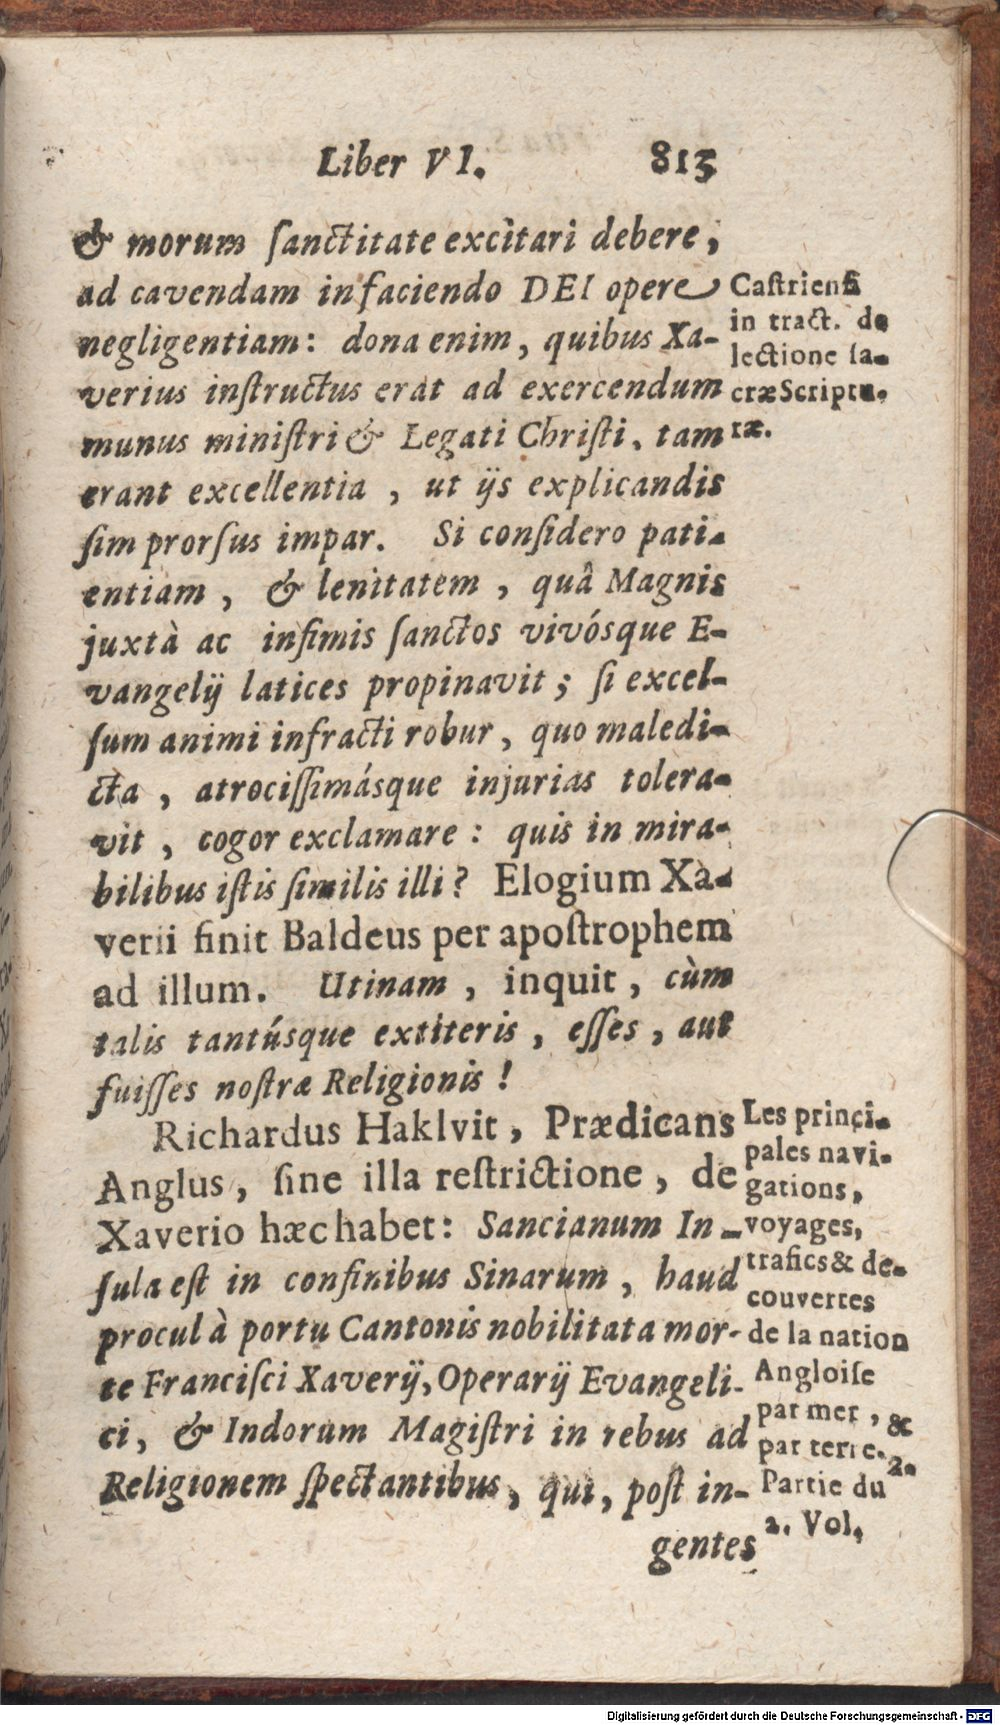 Liber VI. 815
& morum ſanctitate excitari debere,
ad cavendam in faciendo DEI opere
negligentiam: dona enim, quibus Xa-
verius inſtructus erat ad exercendum
munus miniſtri & Legati Chriſti, tam
erant excellentia, ut ijs explicandis
ſim prorſus impar. Si conſidero pati-
entiam, & lenitatem, quâ Magnis
juxtà ac infimis ſanctos vivósque E-
vangelij latices propinavit; ſi excel-
ſum animi infracti robur, quo maledi-
cta, atrociſſimásque injurias tolera-
vit, cogor exclamare: quis in mira-
bilibus iſtis ſimilis illi? Elogium Xa-
verii finit Baldeus per apoſtrophem
ad illum. Utinam, inquit, cùm
talis tantúsque extiteris, eſſes, aut
fuiſſes noſtræ Religionis!
Richardus Haklvit, Prædicans
Anglus, ſine illa reſtrictione, de
Xaverio hæc habet: Sancianum In-
ſula eſt in confinibus Sinarum, haud
procul à portu Cantonis nobilitata mor-
te Franciſci Xaverij, Operarij Evangeli-
ci, & Indorum Magiſtri in rebus ad
Religionem ſpectantibus, qui, poſt in-
gentes
Caſtrienſ
in tract. de
lectione ſa-
cræ Scriptu-
ræ.
Les princi-
pales navi-
gations,
voyages,
trafics & de-
couvertes
de la nation
Angloiſe
par mer, &
par terre. 2.
Partie du
2. Vol.
Digitalisierung gefördert durch die Deutsche Forschungsgemeinschaft - DFG